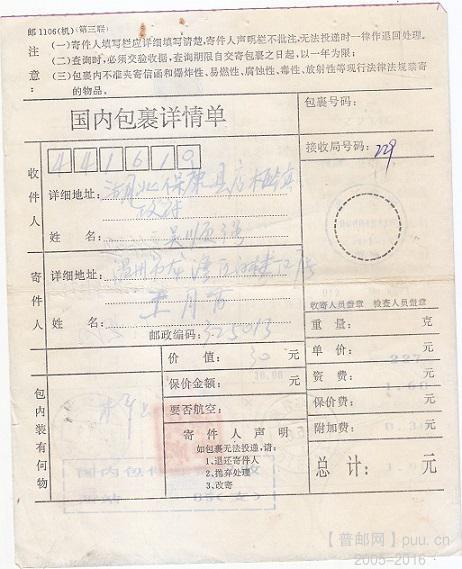 邮1106(机)(第三联)
注意：
(一)寄件人填写栏应详细填写清楚，寄件人声明栏不批注，无法投递时一律作退回处理。
(二)查询时，必须交验收据，查询期限自交寄包裹之日起，以一年为限；
(三)包裹内不准夹寄信函和爆炸性、易燃性、腐蚀性、毒性、放射性等现行法律法规禁寄
的物品。
国内包裹详情单
包裹号码：
接收局号码：229
收件人
441619
详细地址：湖北保康县店垭镇
姓 名：
寄件人
详细地址：温州市龙湾区
姓 名：
邮政编码：325013
收寄人员盖章 检查人员盖章
重 量： 克
单 价： 元
资 费： 元
保价费： 元
附加费： 元
总 计： 元
包内装有何物
价 值：30 元
保价金额： 元
要否航空：
寄件人声明
如包裹无法投递，请：
1.退还寄件人
2.抛弃处理
3.改寄
【普邮网】puu.cn
2005-2016